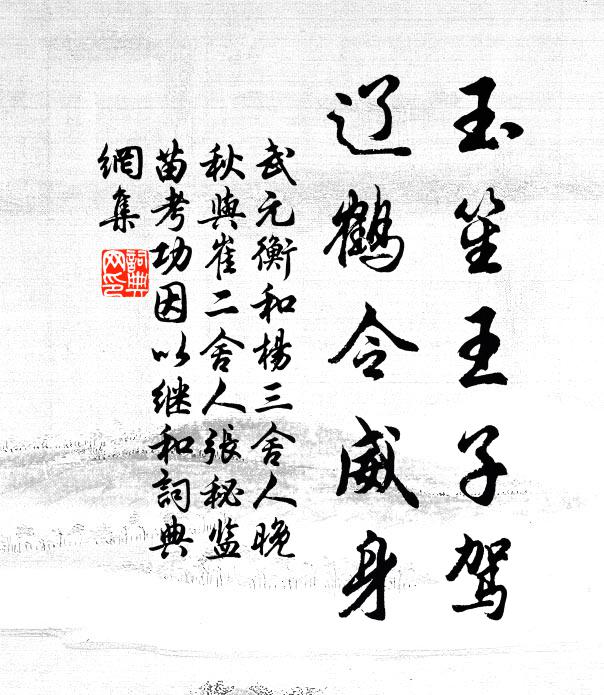 玉笙王子驾
辽鹤令威身
武元衡和杨三舍人晚
秋与崔二舍人张秘监
苗考功因以继和詞典
網集
詞典
网印